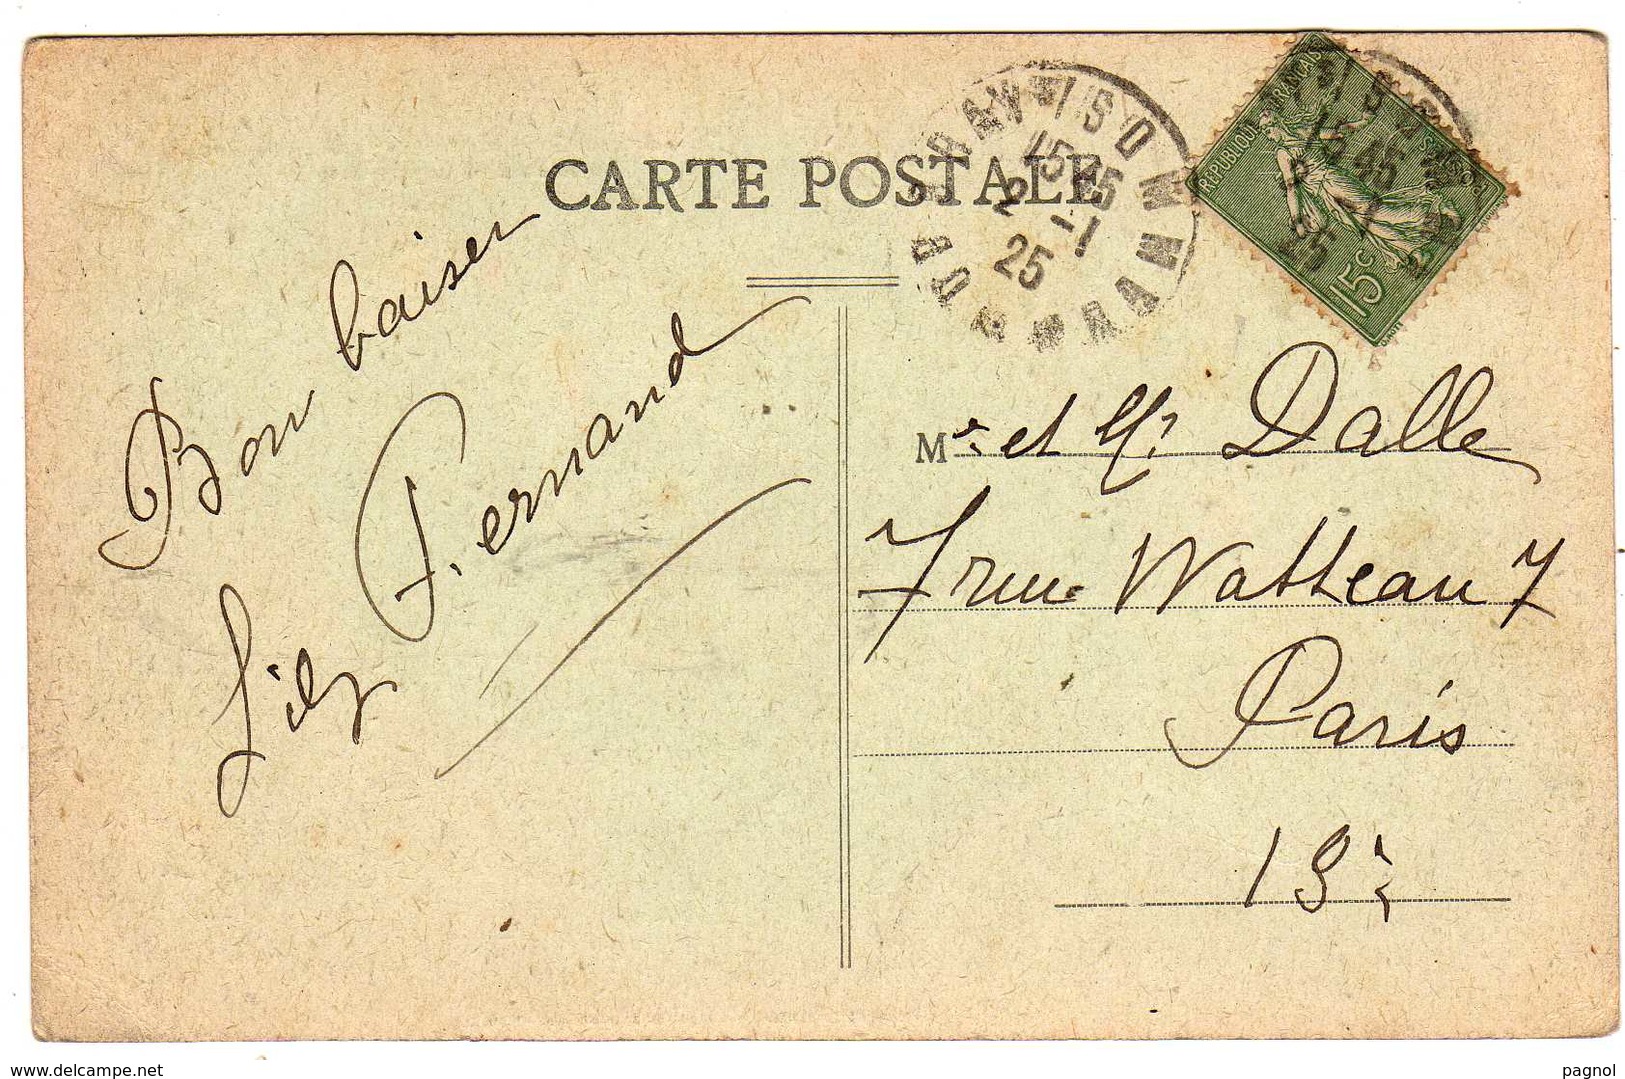 CARTE POSTALE
15 45
2 -1
25
REPUBLIQUE FRANCAISE
POSTES
15c
Bon baiser
Lily Fernand
Mr. et Me. Dalle
7 rue Watteau 7
Paris
13e
www.delcampe.net
pagnol